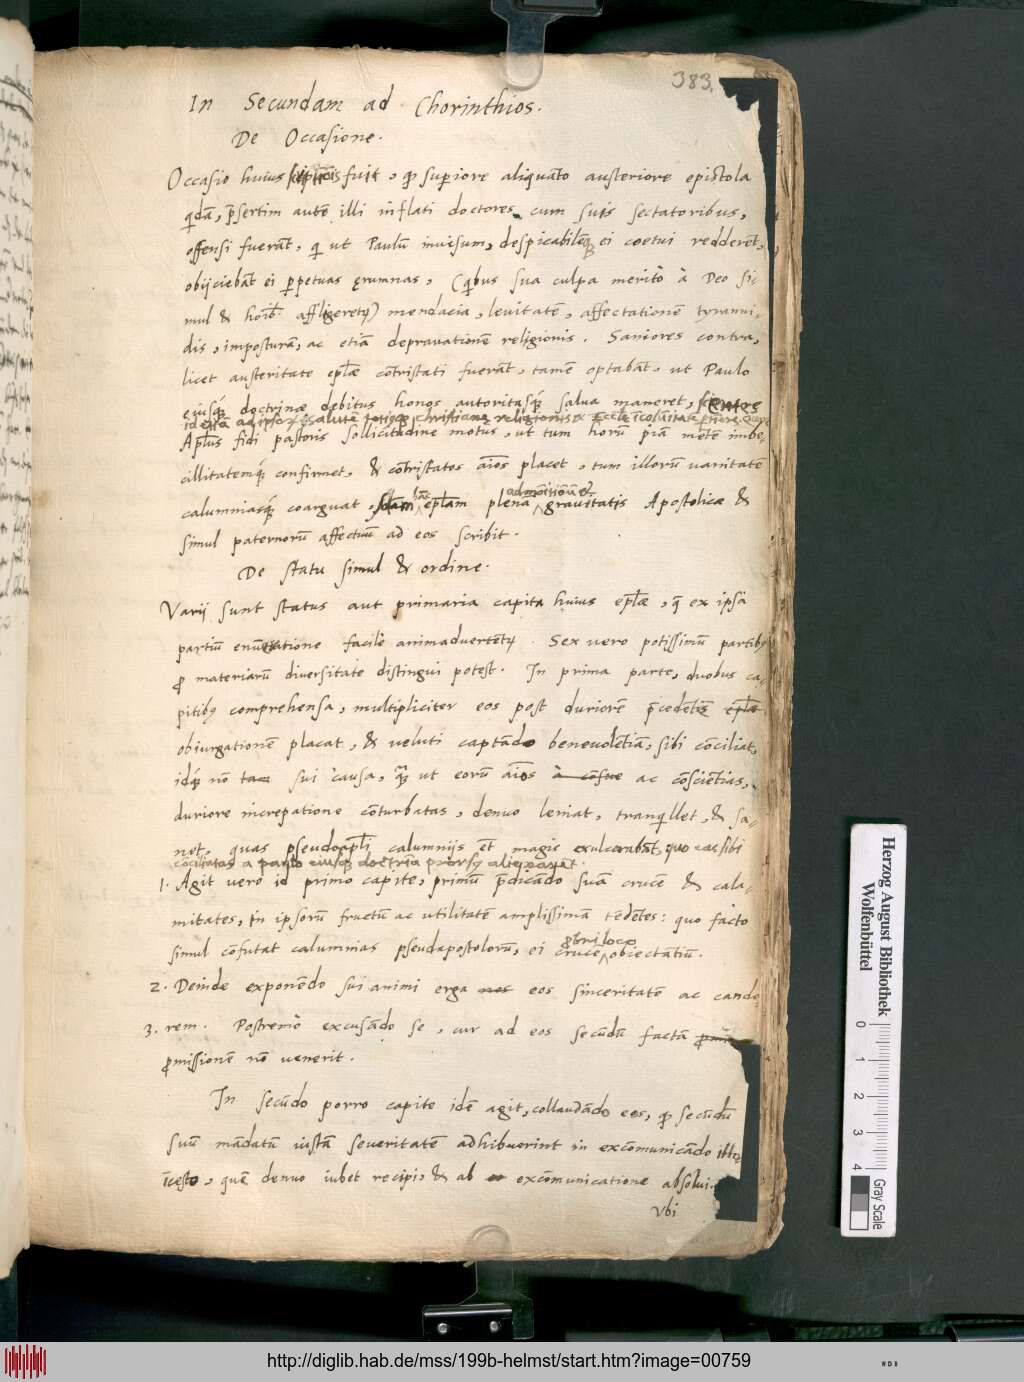 383.
In Secundam ad Chorinthios.
De Occasione.
Occasio huius fuit, qͥ superiore aliquāto austeriore epistola
qdā, p̄sertim autē illi inflati doctores cum suis sectatoribus,
offensi fuerāt, qi ut Paulū inuisum, despicabilēq ei coetui redderēt,
obijciebāt ei ꝑpetuas ęrumnas, (qbus sua culpa meritò à Deo si
mul & hoib. affligeretꝰ) mendacia, leuitatē, affectationē tyranni,
dis, imposturā, ac etiā deprauationē religionis. Saniores contra,
licet austeritate eplæ cōtristati fuerāt, tamē optabāt, ut Paulo
eiusq́ doctrinæ debitus honos autoritasq́ salua maneret,
id etiā ad ipsorū salutē totiusq christianę religionis
Aplus fidi pastoris sollicitudine motus, ut tum horū piā mētē imbe,
cillitatemq́ confirmet, & cōtristatos aīos placet, tum illorū uanitatē
calumniasq́ coarguat, hāc eplam plenā admōitionū & grauitatis Apostolicæ &
simul paternorū affectuū ad eos scribit.
De statu simul & ordine.
Varij sunt status aut primaria capita huius eplæ, q̄ ex ipsā
partiū enūeratione facilè animaduertētꝰ. Sex vero potissimū partibꝰ
ꝓ materiarū diuersitate distingui potest. In prima parte, duobus ca,
pitibꝰ comprehensa, multipliciter eos post duriorē p̄cedētis eplæ
obiurgationē placat, & ueluti captādo beneuolētiā, sibi cōciliat,
idq́ nō tam sui causa, q̄ ut eorū aīos à cōfue ac cōsciētias,
duriore increpatione cōturbatas, denuo leniat, tranqllet, & sa⸗
net, quas pseudoapli calumnijs et magis exulcerabāt, quo eas sibi
cōciliatas a paulo eiusq doctrina prorsꝰ alienarēt.
1. Agit vero id primo capite, primū p̄dicādo suā crucē & cala⸗
mitates, in ipsorū fructū ac utilitatē amplissimā tēdētes: quo facto
simul cōfutat calumnias pseudapostolorū, ei crucē obrij loco obiectantiū.
2. Deinde exponēdo sui animi erga nos eos sinceritatē ac cando
3. rem. Postremò excusādo se, cur ad eos secūdū factā
ꝓmissionē nō uenerit.
In secūdo porro capite idē agit, collaudādo eos, qͥ secūdū
suū mādatū iustā seueritatē adhibuerint in excōmunicādo illo
īcesto, quē denuo iubet recipi, & ab excōmunicatione absolui.
Vbi
Herzog August Bibliothek
Wolfenbüttel
0 1 2 3 4
Gray Scale
http://diglib.hab.de/mss/199b-helmst/start.htm?image=00759